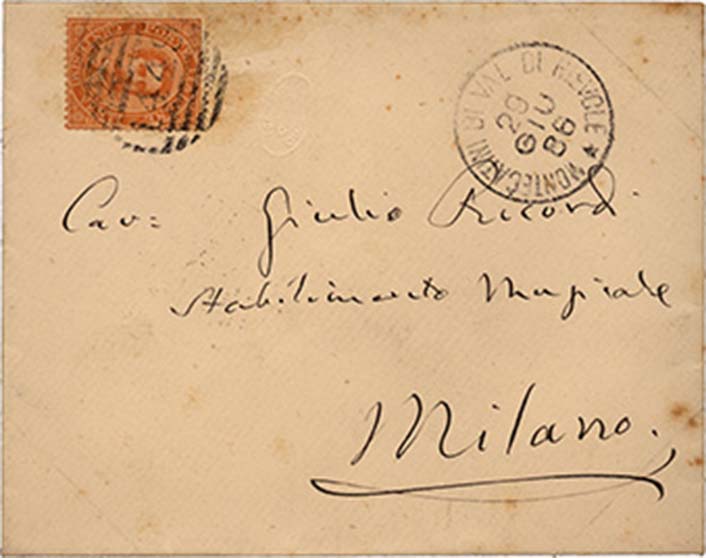 MONTECATINI DI VAL DI NIEVOLE
29
GIU
86
Cav: Giulio Ricordi
Stabilimento Musicale
Milano.